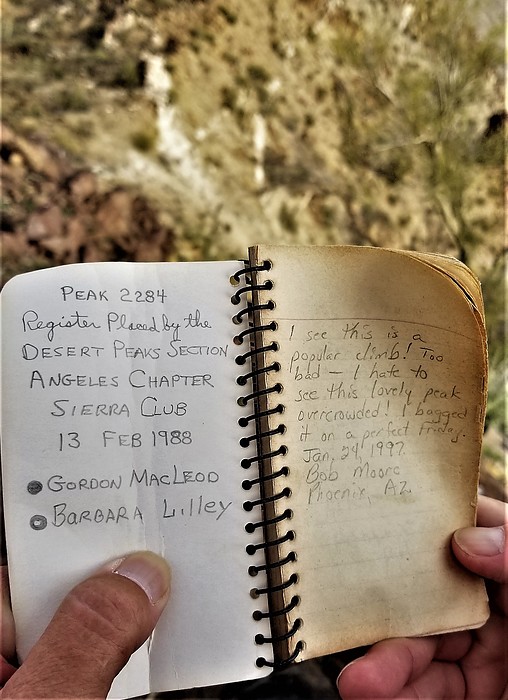 PEAK 2284
Register Placed by the
DESERT PEAKS SECTION
ANGELES CHAPTER
SIERRA CLUB
13 FEB 1988
GORDON MACLEOD
BARBARA Lilley
I see this is a
popular climb! Too
bad – I hate to
see this lovely peak
overcrowded! I bagged
it on a perfect Friday.
Jan, 24, 1997.
Bob Moore
Phoenix, AZ